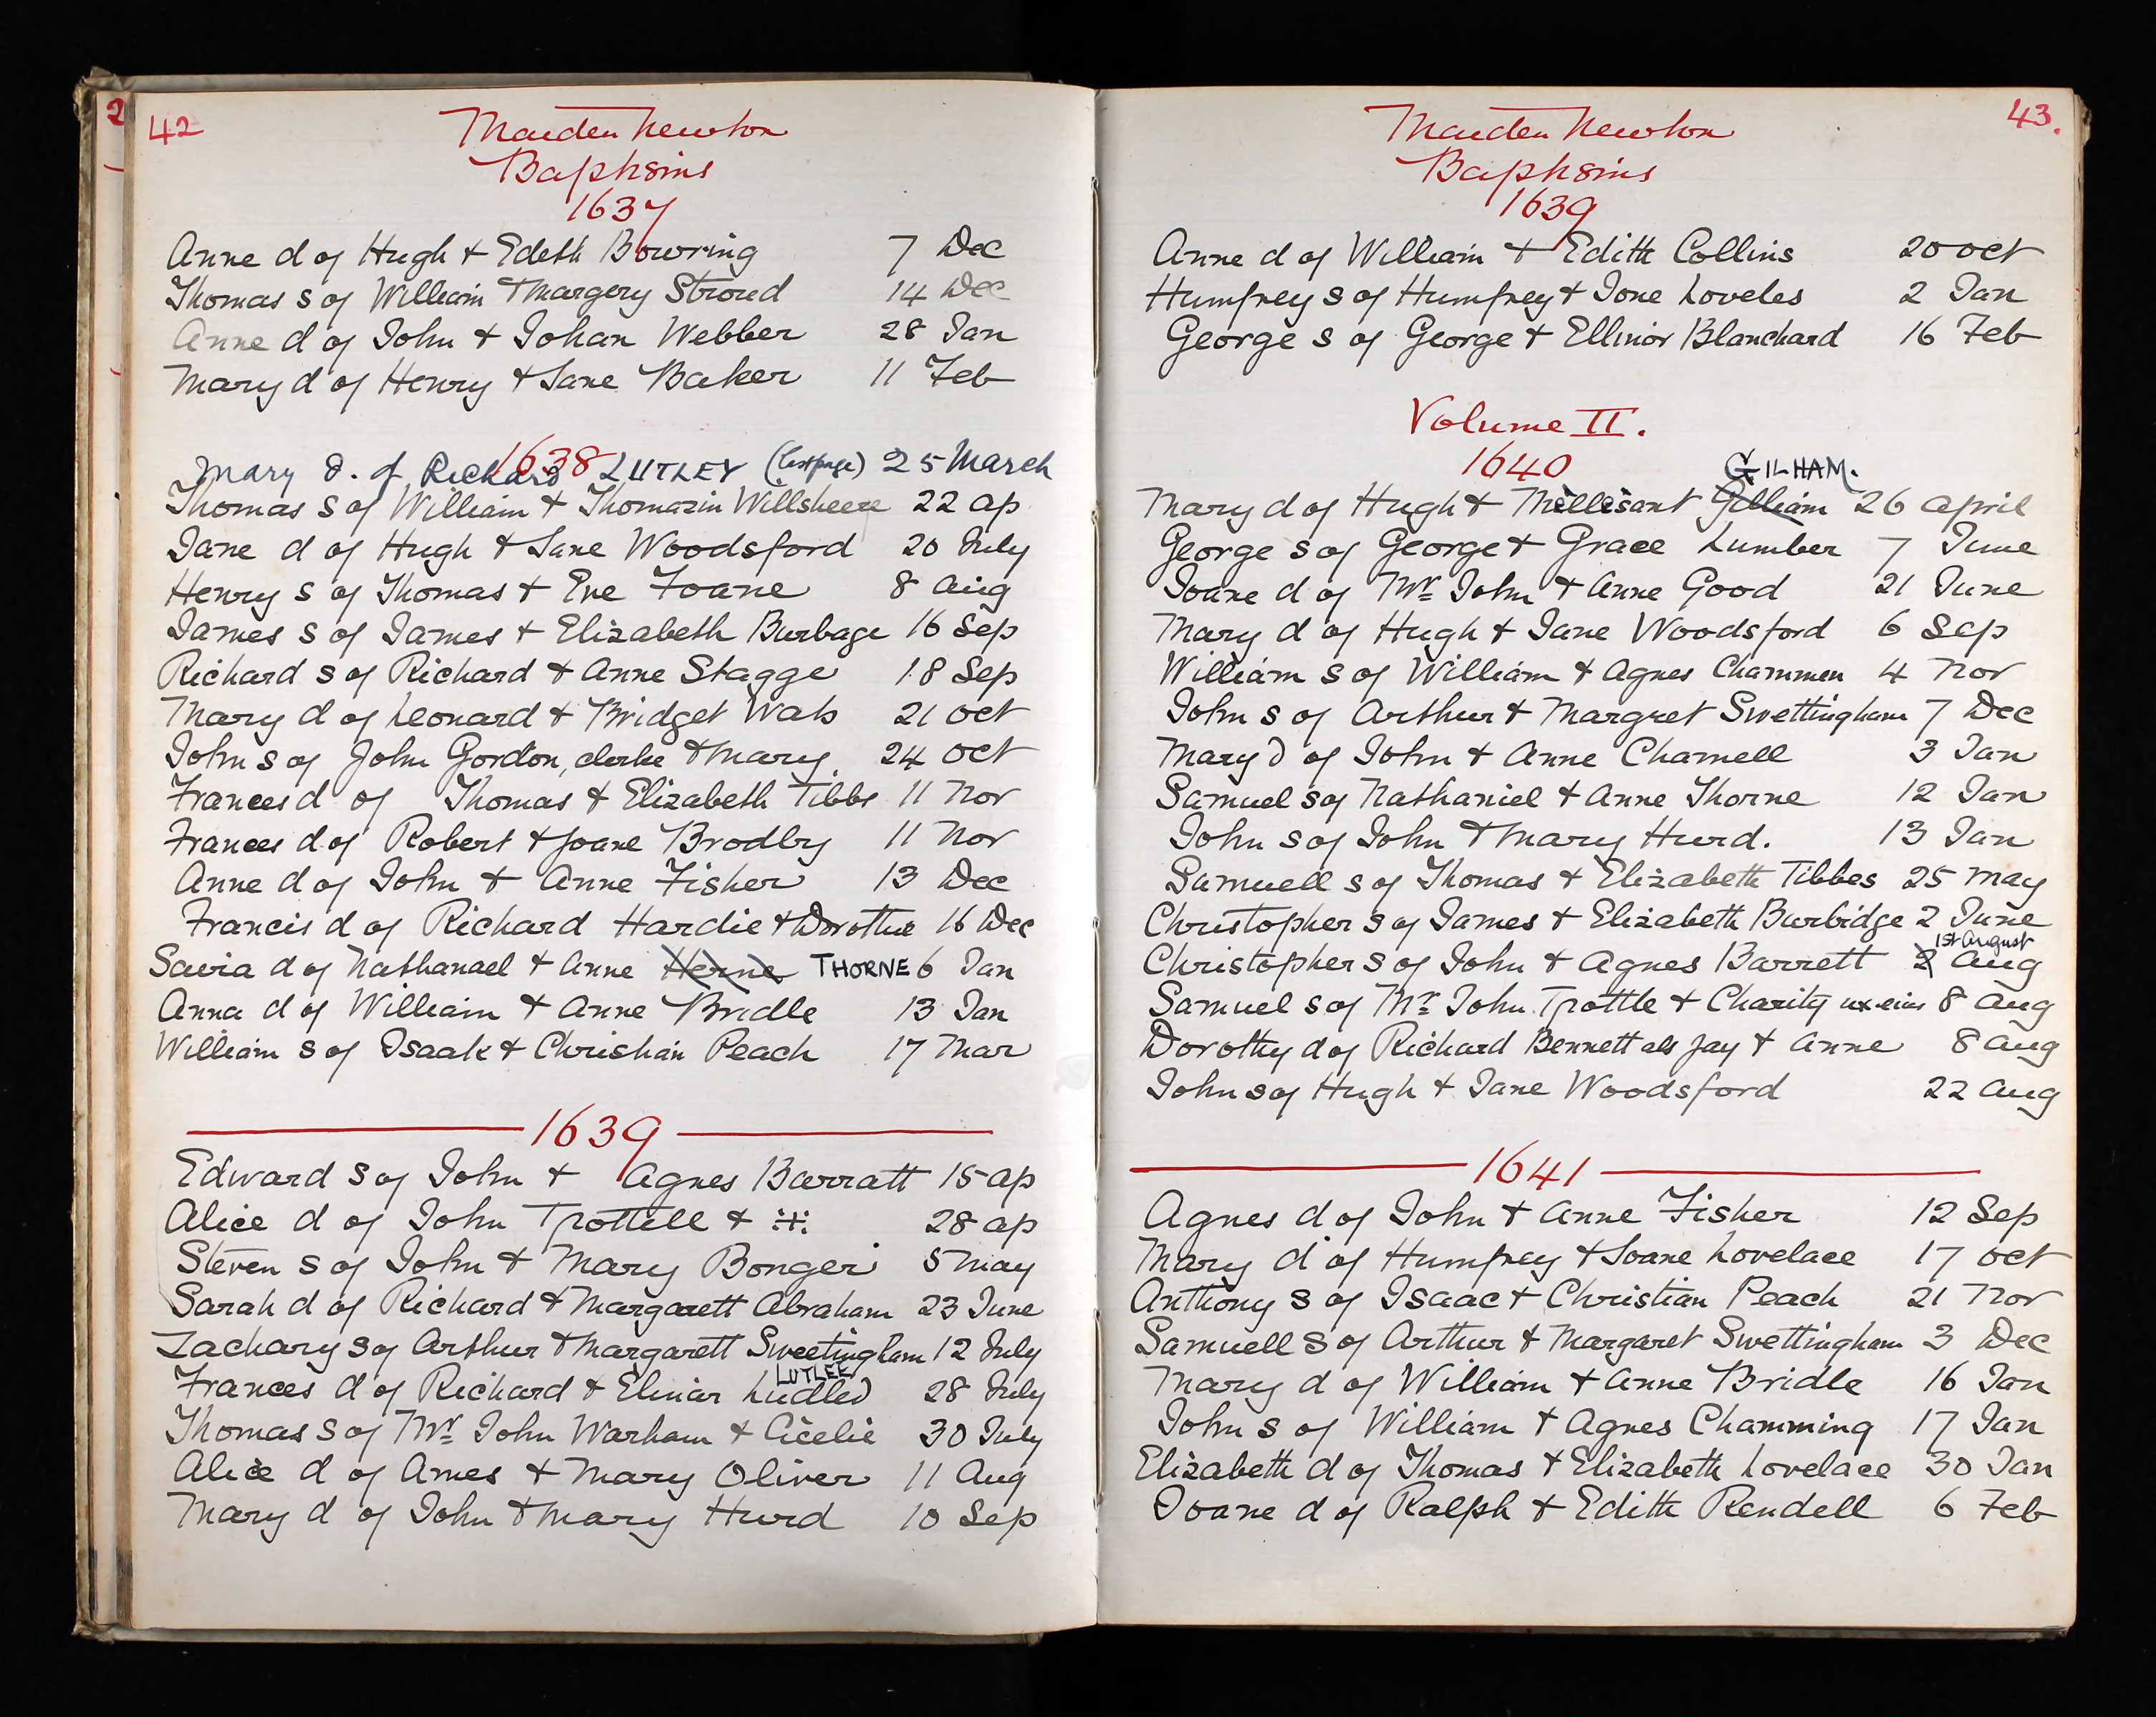 2
42
Maiden Newton
Baptisms
1637
Anne d of Hugh + Edeth Bowring 7 Dec
Thomas s of William + Margery Stroud 14 Dec
Anne d of John + Johan Webber 28 Jan
Mary d of Henry + Jane Baker 11 Feb
1638
Mary d. of Richard LUTLEY (last page) 25 March
Thomas s of William + Thomazin Willsheere 22 ap
Jane d of Hugh + Jane Woodsford 20 July
Henry s of Thomas + Eve Foane 8 Aug
James s of James + Elizabeth Burbage 16 Sep
Richard s of Richard + Anne Stagge 18 Sep
Mary d of Leonard + Bridget Wats 21 Oct
John s of John Gordon, clerke + Mary 24 Oct
Frances d of Thomas + Elizabeth Tibbs 11 Nov
Frances d of Robert + Joane Brodby 11 Nov
Anne d of John + Anne Fisher 13 Dec
Francis d of Richard Hardie + Dorothie 16 Dec
Savia d of Nathanael + Anne Herne THORNE 6 Jan
Anna d of William + Anne Bridle 13 Jan
William s of Isaak + Christian Peach 17 Mar
1639
Edward s of John + Agnes Barratt 15 ap
Alice d of John Trottell + 28 ap
Steven s of John + Mary Bonger 5 May
Sarah d of Richard + Margarett Abraham 23 June
Zachary s of Arthur + Margarett Sweetingham 12 July
LUTLEE
Frances d of Richard + Elinar Ludled 28 July
Thomas s of Mr John Warham + Cicelie 30 July
Alice d of Ames + Mary Oliver 11 Aug
Mary d of John + Mary Hurd 10 Sep
43.
Maiden Newton
Baptisms
1639
Anne d of William + Edith Collins 20 Oct
Humfrey s of Humfrey + Ione Loveles 2 Jan
George s of George + Ellinor Blanchard 16 Feb
Volume II.
1640
GILHAM.
Mary d of Hugh + Mellesant Gilliam 26 April
George s of George + Grace Lumber 7 June
Joane d of Mr John + Anne Good 21 June
Mary d of Hugh + Jane Woodsford 6 Sep
William s of William + Agnes Chammen 4 Nov
John s of Arthur + Margret Swettingham 7 Dec
Mary d of John + Anne Charnell 3 Jan
Samuel s of Nathaniel + Anne Thorne 12 Jan
John s of John + Mary Hurd. 13 Jan
Samuell s of Thomas + Elizabeth Tibbes 25 May
Christopher s of James + Elizabeth Burbidge 2 June
1st August
Christopher s of John + Agnes Barrett 2 Aug
Samuel s of Mr John Trottle + Charity ux eius 8 Aug
Dorothy d of Richard Bennett als Jay + Anne 8 Aug
John s of Hugh + Jane Woodsford 22 Aug
1641
Agnes d of John + Anne Fisher 12 Sep
Mary d of Humfrey + Joane Lovelace 17 Oct
Anthony s of Isaac + Christian Peach 21 Nov
Samuell s of Arthur + Margaret Swettingham 3 Dec
Mary d of William + Anne Bridle 16 Jan
John s of William + Agnes Chamming 17 Jan
Elizabeth d of Thomas + Elizabeth Lovelace 30 Jan
Joane d of Ralph + Edith Rendell 6 Feb